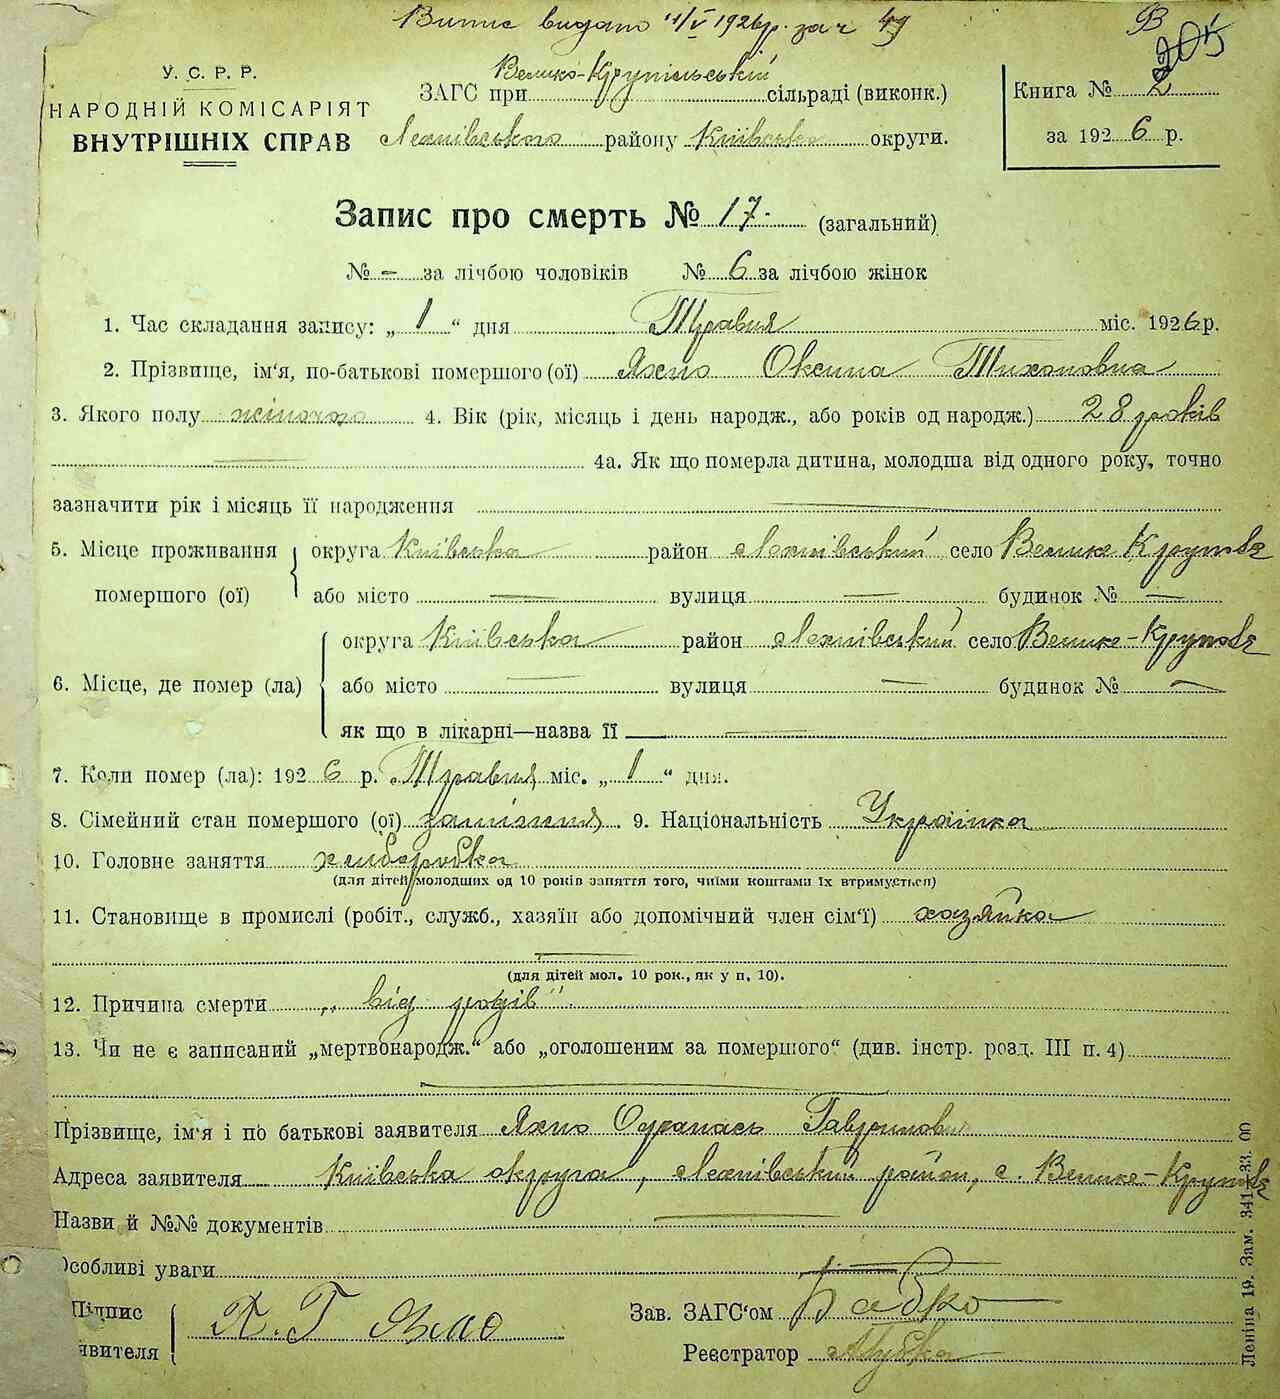 Випис видано 11/V 1926р. за ч 49
В
205
У. С. Р. Р.
НАРОДНІЙ КОМІСАРІЯТ
ВНУТРІШНІХ СПРАВ
ЗАГС при Велико-Крупільській сільраді (виконк.)
району Київсько округи.
Книга № 2
за 1926 р.
Запис про смерть № 17. (загальний)
№ – за лічбою чоловіків № 6 за лічбою жінок
1. Час складання запису: „ 1 “ дня Травня міс. 1926 р.
2. Прізвище, ім‘я, по-батькові помершого (ої) Яхно Оксина Тихоновна
3. Якого полу жіночого 4. Вік (рік, місяць і день народж., або років од народж.) 28 років
4а. Як що померла дитина, молодша від одного року, точно
зазначити рік і місяць її народження
5. Місце проживання помершого (ої)
округа Київська район село Велике Круполє
або місто — вулиця — будинок № —
6. Місце, де помер (ла)
округа Київська район село Велике-Круполє
або місто — вулиця — будинок № —
як що в лікарні—назва її —
7. Коли помер (ла): 1926 р. Травня міс. „ 1 “ дня.
8. Сімейний стан помершого (ої) замізня. 9. Національність Українка
10. Головне заняття хліборобка
(для дітей молодших од 10 років заняття того, чиїми коштами їх втримується)
11. Становище в промислі (робіт., служб., хазяїн або допомічний член сім‘ї) хазяйка
(для дітей мол. 10 рок., як у п. 10).
12. Причина смерти „від родів“.
13. Чи не є записаний „мертвонародж.“ або „оголошеним за помершого“ (див. інстр. розд. III п. 4)
Прізвище, ім‘я і по батькові заявителя Яхно Гаврилович
Адреса заявителя Київська округа, район, с. Велике-Круполє
Назви й №№ документів —
Особливі уваги
Підпис
заявителя
Зав. ЗАГС‘ом Бабко
Реєстратор
Леніна 19. Зам. 341